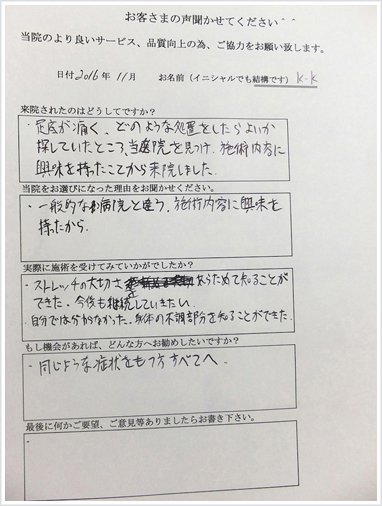 お客さまの声聞かせてください^^
当院のより良いサービス、品質向上の為、ご協力をお願い致します。
日付 2016年 11月 お名前(イニシャルでも結構です) K-K
来院されたのはどうしてですか?
・足底が痛く、どのような処置をしたらよいか
探していたところ、当庭院を見つけ、施術内容に
興味を持ったことから来院しました。
当院をお選びになった理由をお聞かせください。
・一般的な病院と違う、施術内容に興味を
持ったから.
実際に施術を受けてみていかがでしたか?
・ストレッチの大切さを あらためて知ることが
できた. 今後も継続していきたい.
・自分では分からなかった、身体の不調部分を知ることができた.
もし機会があれば、どんな方へお勧めしたいですか?
・同じような症状をもつ方すべてへ.
最後に何かご要望、ご意見等ありましたらお書き下さい。